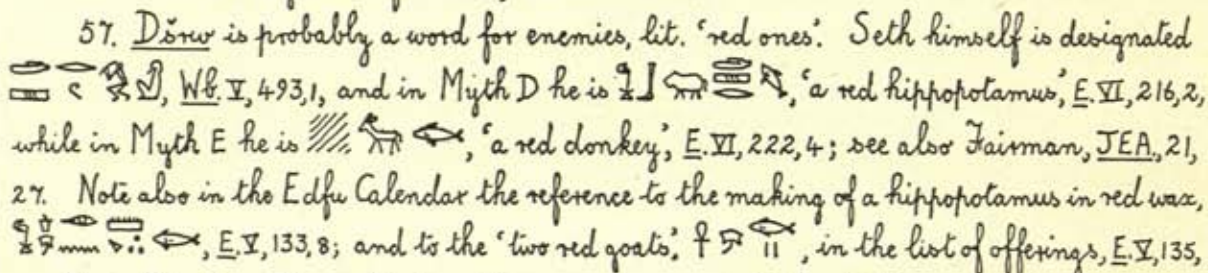 57. Dšrw is probably a word for enemies, lit. 'red ones'. Seth himself is designated
, Wb. V, 493,1, and in Myth D he is , 'a red hippopotamus', E. VI, 216,2,
while in Myth E he is , 'a red donkey', E. VI, 222,4; see also Fairman, JEA., 21,
27. Note also in the Edfu Calendar the reference to the making of a hippopotamus in red wax,
, E. V, 133,8; and to the 'two red goats', , in the list of offerings, E. V, 135,